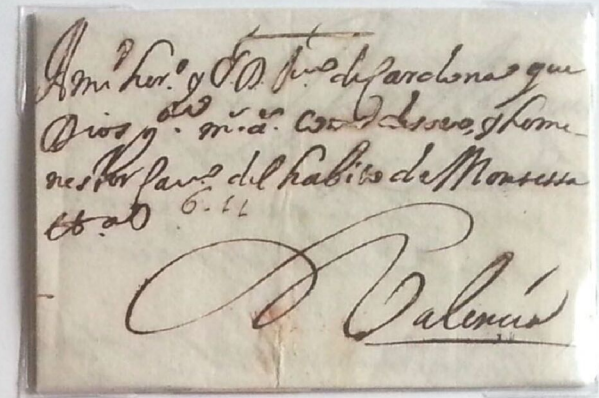 A mi her.º y S.r D. Ju.º de Cardona que
Dios g.de m.s a.s como desseo, y home-
nester Cav.º del habito de Montessa
6-11
Valencia